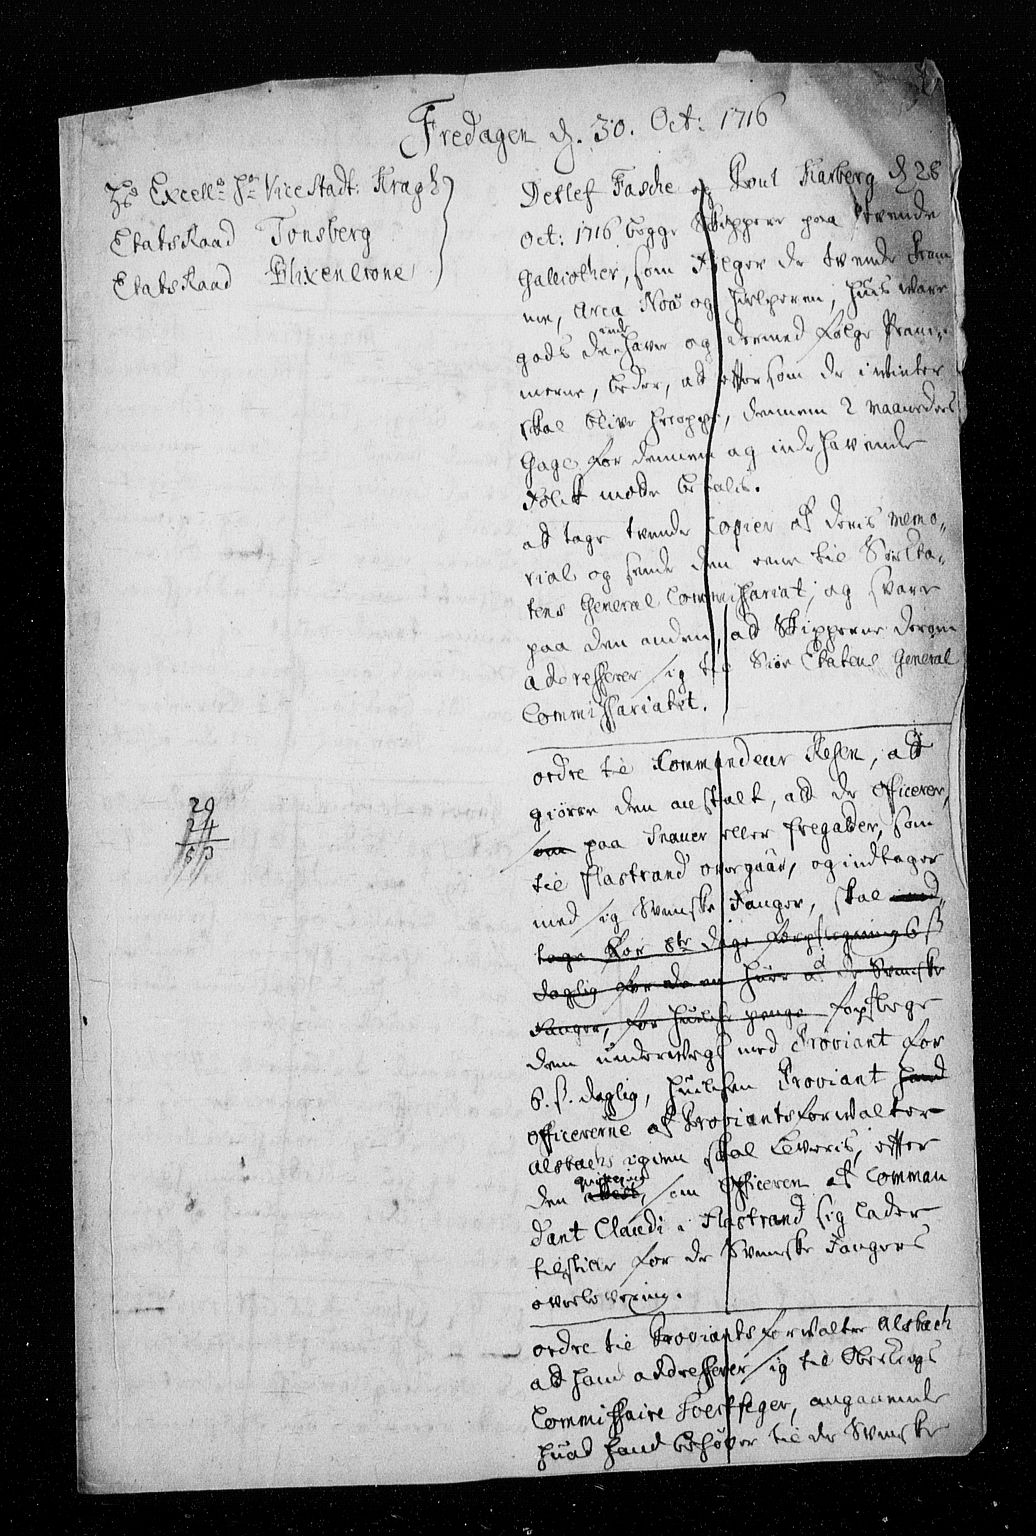 Fredagen d. 30. Oct: 1716
Hs Excell: Hr ViceStadt: Kragh
EtatsRaad Tonsberg
EtatsRaad Blixencrone
Detlef Fasche og Poul Karberg d 28
Oct: 1716 begge Skippere paa tvende
Galliother, som følger de tvende Pram
me, Arca Noä og Hielperen, huis ware
gods de inde haver og dermed følge Pram-
merne, beder, at efftersom de i winter
skal blive heroppe, dennem 2 Maaneders
Gage for dennem og inde havende
Folk maatte betalis.
at tage tvende Copier af deris Memo-
rial og sende den eene til Søe Eta-
tens General Commissariat, og svare
paa den anden, at Skipperne derom
adresserer sig til Søe Etatens General
Commissariatet.
ordre til Commandeur Rosen, at
giøre den anstalt, at de Officerer,
som paa Snauer eller Fregatter, som
til Flastrand overgaar, og indtager
med sig Svenske Fanger, skal ind-
tage for 8te dage forpflegning 6 ß
daglig for de Svenske
Fanger, for huilke penge forpflege
dem underweys med Proviant for
6. ß. daglig, huilchen Proviant hand
Officererne af Proviantsforwalter
Alsbach igien skal leveris, effter
den qvitering som Officeren af Comman
dant Claudi i Flastrand sig lader
tilstille for de Svenske Fangers
overlevering.
ordre til Proviantsforwalter Alsbach
at hand addresserer sig til Oberkrigs
Commissaire, angaaende
huad hand behøver til de Svenske
29
24
53